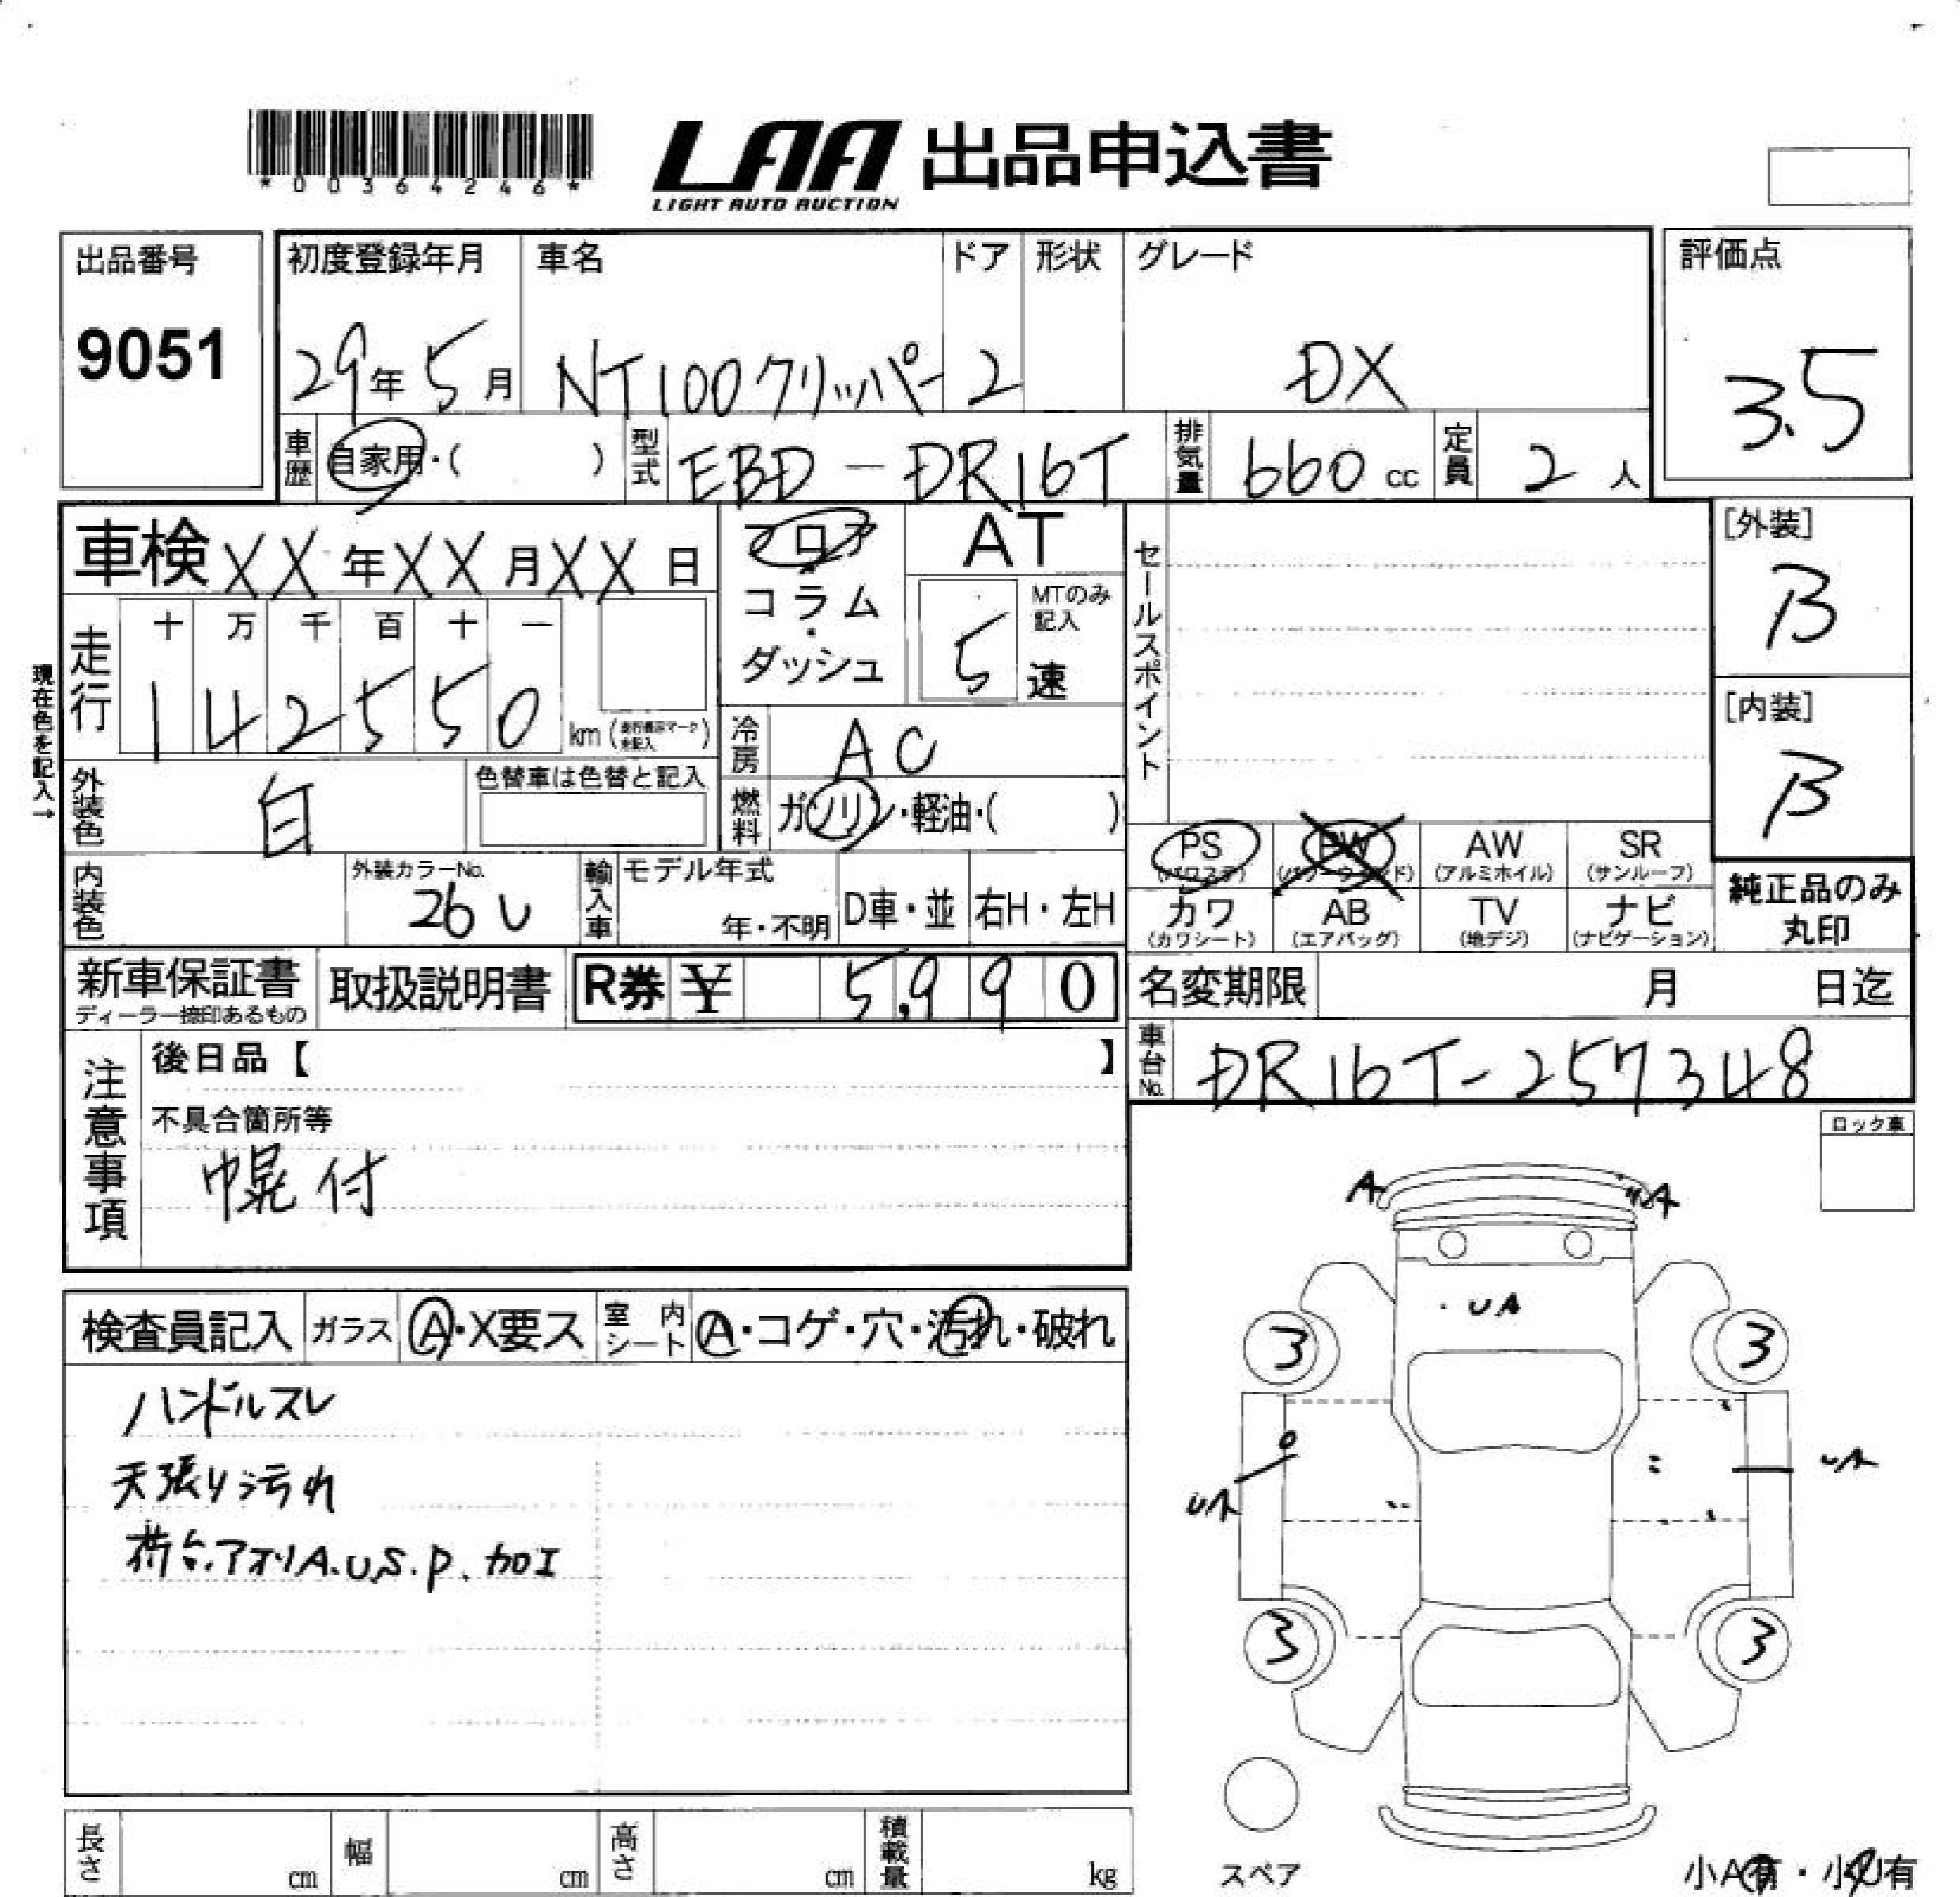 *00364246*
LAA 出品申込書
LIGHT AUTO AUCTION
出品番号
9051
初度登録年月 車名 ドア 形状 グレード
29年5月 NT100クリッパー 2 DX
評価点
3.5
車歴 自家用・( ) 型式 EBD-DR16T 排気量 660cc 定員 2人
車検XX年XX月XX日
フロア
コラム
・
ダッシュ
AT
MTのみ記入
5速
セールスポイント
[外装]
B
[内装]
B
現在色を記入→
走行 十 万 千 百 十 一
142550 km (走行表示マークを記入)
冷房 AC
外装色 白 色替車は色替と記入
燃料 ガソリン・軽油・( )
PS (パワステ) PW (パワーウィンド) AW (アルミホイル) SR (サンルーフ)
カワ (カワシート) AB (エアバッグ) TV (地デジ) ナビ (ナビゲーション)
純正品のみ
丸印
内装色 外装カラーNo. 26U 輸入車 モデル年式 年・不明 D車・並 右H・左H
新車保証書 取扱説明書 R券 ¥ 5,990
ディーラー捺印あるもの
名変期限 月 日迄
車台No. DR16T-257348
注意事項
後日品【 】
不具合箇所等
幌付
ロック車
検査員記入 ガラス A・X要ス 室内シート A・コゲ・穴・汚れ・破れ
ハンドルスレ
天張り汚れ
荷台.アオリA.U.S.P.加工
A A
・UA
3 3
UA UA
3 3
スペア
小A有・小U有
長さ cm 幅 cm 高さ cm 積載量 kg